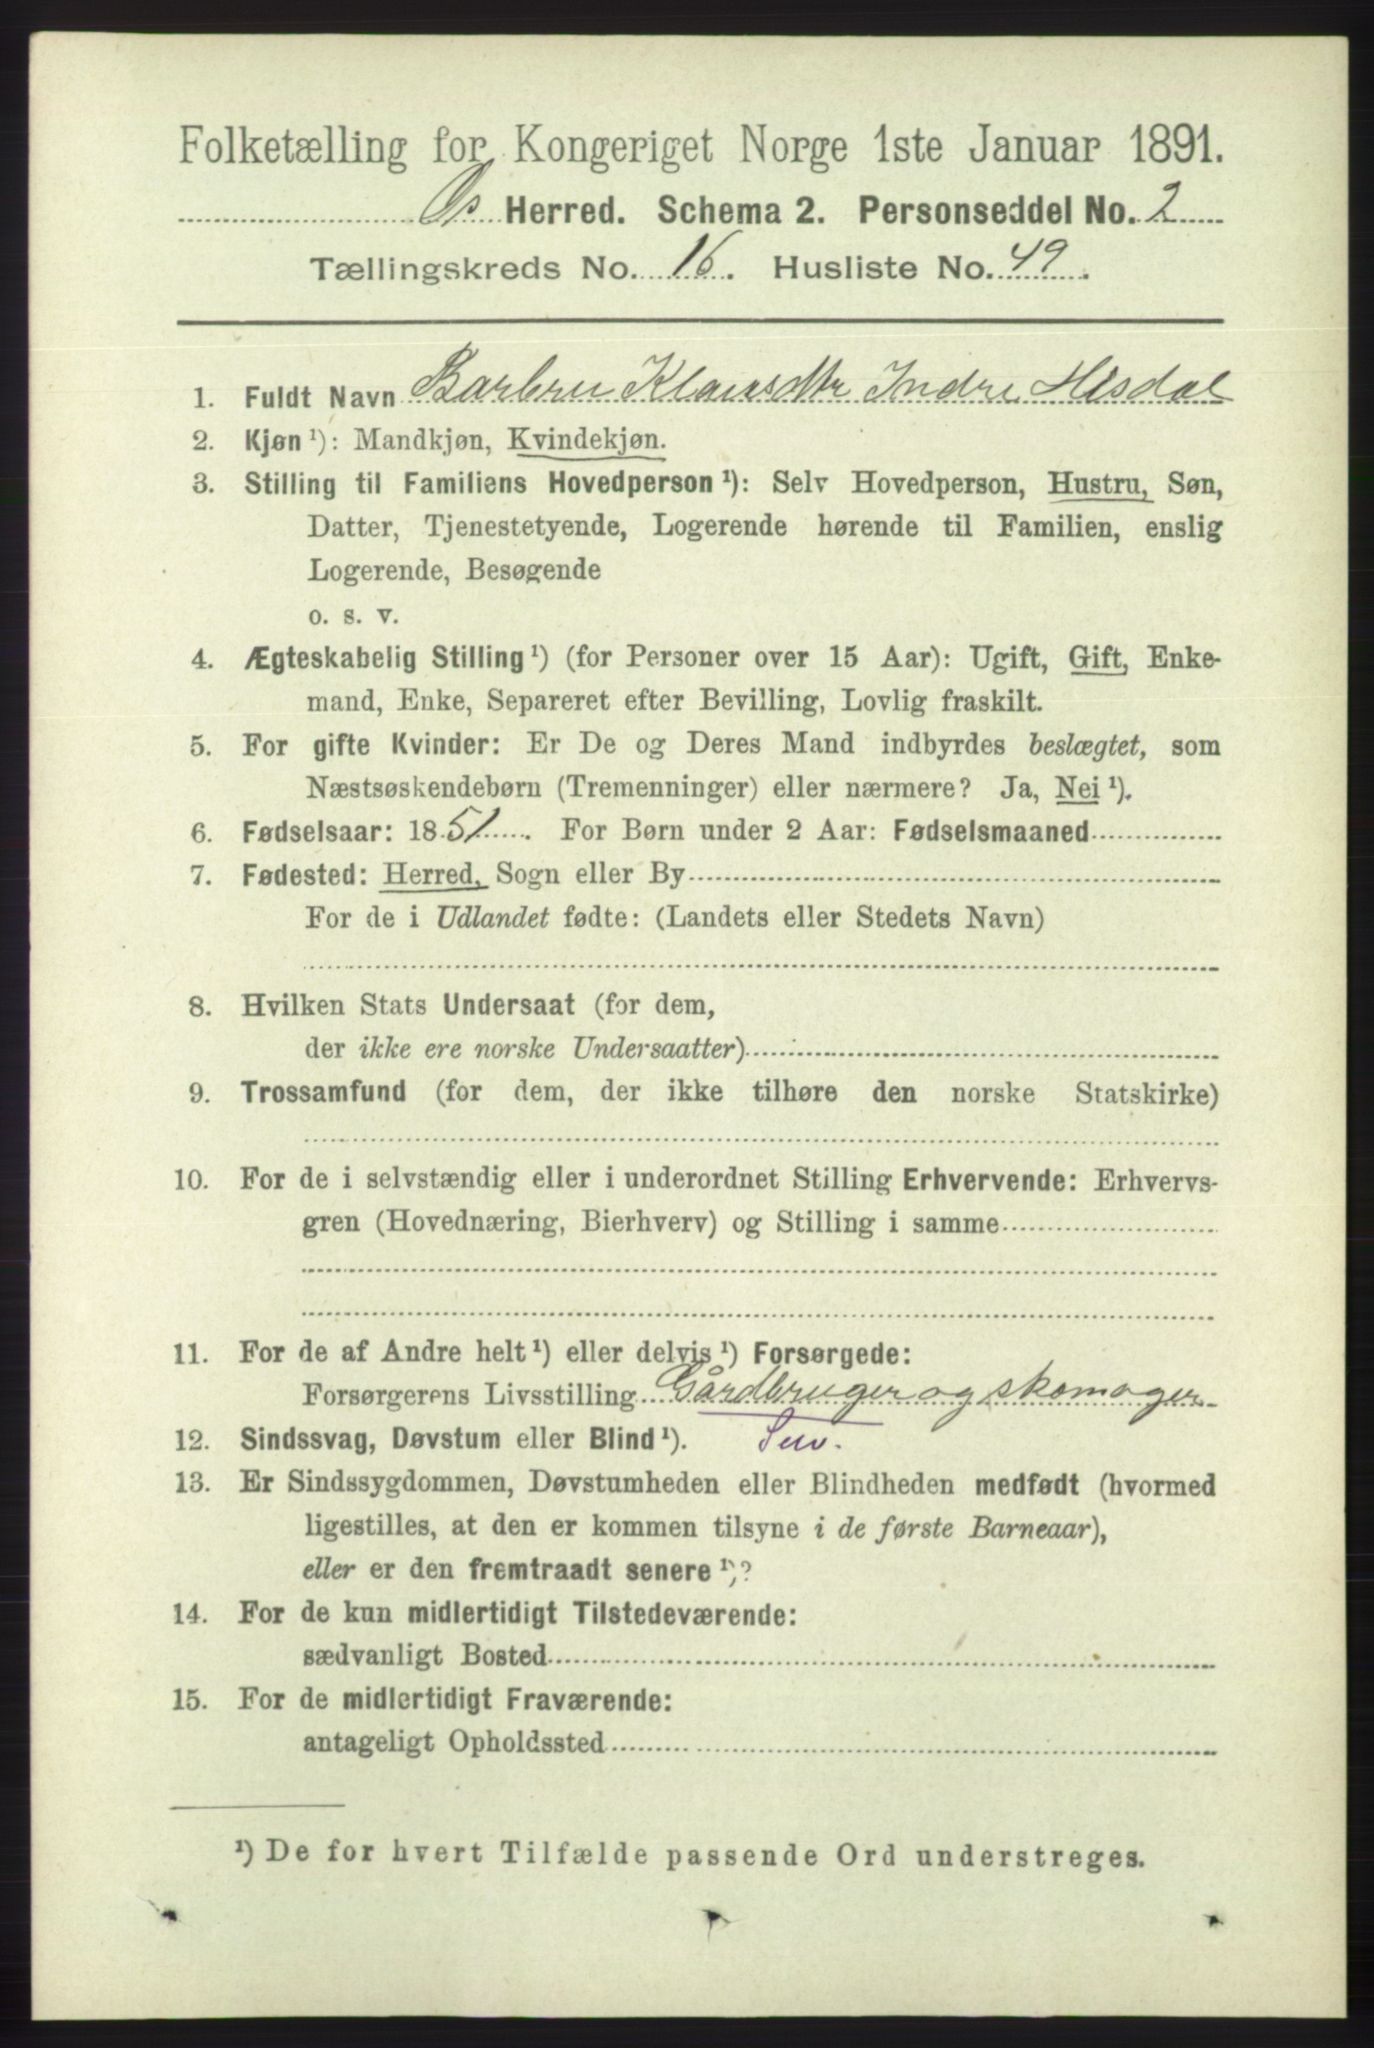 Folketælling for Kongeriget Norge 1ste Januar 1891.
Os Herred. Schema 2. Personseddel No. 2
Tællingskreds No. 16. Husliste No. 49.
1. Fuldt Navn Barbru Klausdtr Indre Hisdal
2. Kjøn¹): Mandkjøn, Kvindekjøn.
3. Stilling til Familiens Hovedperson¹): Selv Hovedperson, Hustru, Søn,
Datter, Tjenestetyende, Logerende hørende til Familien, enslig
Logerende, Besøgende
o. s. v.
4. Ægteskabelig Stilling¹) (for Personer over 15 Aar): Ugift, Gift, Enke-
mand, Enke, Separeret efter Bevilling, Lovlig fraskilt.
5. For gifte Kvinder: Er De og Deres Mand indbyrdes beslægtet, som
Næstsøskendebørn (Tremenninger) eller nærmere? Ja, Nei¹).
6. Fødselsaar: 1851. For Børn under 2 Aar: Fødselsmaaned
7. Fødested: Herred, Sogn eller By
For de i Udlandet fødte: (Landets eller Stedets Navn)
8. Hvilken Stats Undersaat (for dem,
der ikke ere norske Undersaatter)
9. Trossamfund (for dem, der ikke tilhøre den norske Statskirke)
10. For de i selvstændig eller i underordnet Stilling Erhvervende: Erhvervs-
gren (Hovednæring, Bierhverv) og Stilling i samme
11. For de af Andre helt¹) eller delvis¹) Forsørgede:
Forsørgerens Livsstilling Gårdbruger og skomager
12. Sindssvag, Døvstum eller Blind¹).
13. Er Sindssygdommen, Døvstumheden eller Blindheden medfødt (hvormed
ligestilles, at den er kommen tilsyne i de første Barneaar),
eller er den fremtraadt senere¹)?
14. For de kun midlertidigt Tilstedeværende:
sædvanligt Bosted
15. For de midlertidigt Fraværende:
antageligt Opholdssted
¹) De for hvert Tilfælde passende Ord understreges.